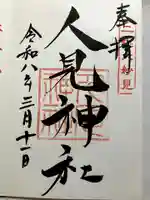 奉拝
人見神社
令和八年三月十一日